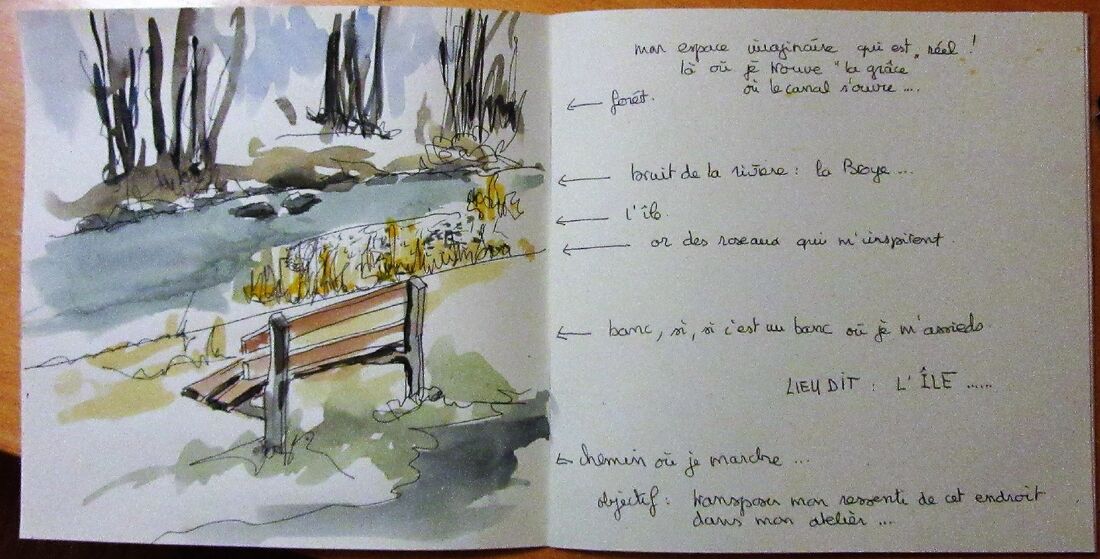 mon espace imaginaire qui est "réel !
là où je trouve "la grâce"
où le canal s'ouvre ....
forêt.
bruit de la rivière : la Broye ...
l'île
or des roseaux qui m'inspirent.
banc, si, si c'est un banc où je m'assieds
LIEU DIT : L'ÎLE ......
chemin où je marche ...
objectif : transposer mon ressenti de cet endroit
dans mon atelier ...